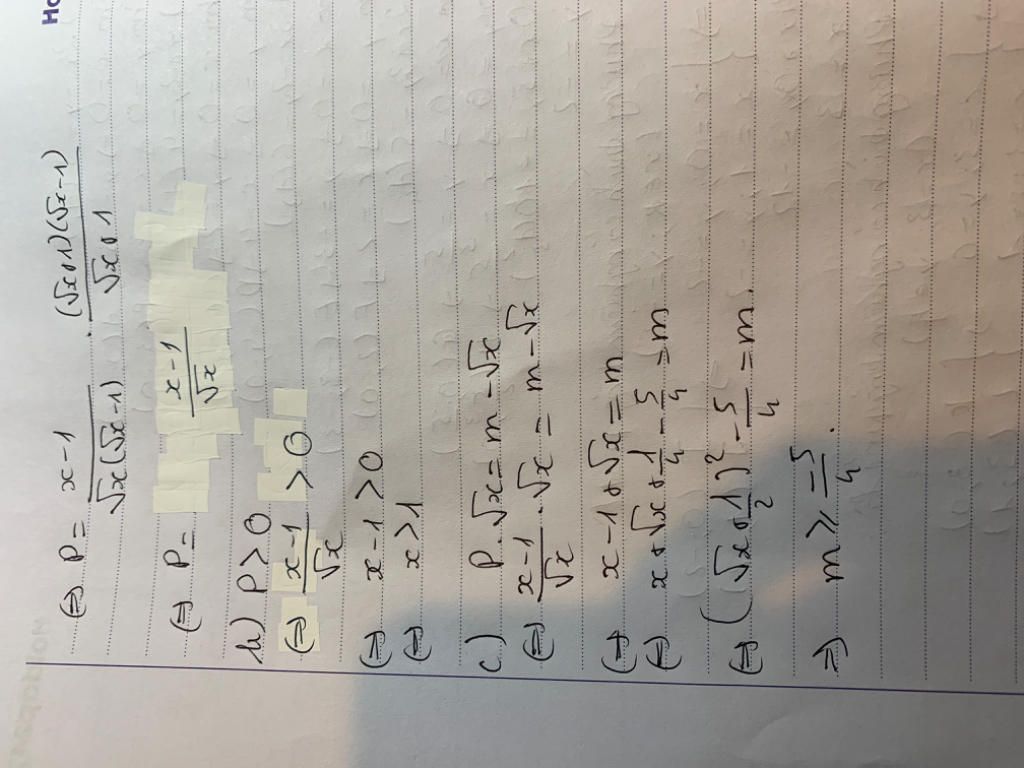 (=) P = x - 1 / √x(√x - 1) . (√x + 1)(√x - 1) / √x + 1
(=) P = x - 1 / √x
b) P > 0
(=) x - 1 / √x > 0
(=) x - 1 > 0
(=) x > 1
c) P . √x = m - √x
(=) x - 1 / √x . √x = m - √x
(=) x - 1 + √x = m
(=) x + √x + 1/4 - 5/4 = m
(=) (√x + 1/2)² - 5/4 = m.
=) m ⩾ -5/4 .